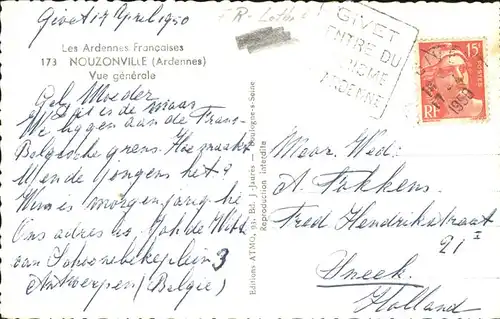 Givet 17 April 1950
FR-
Les Ardennes Françaises
173 NOUZONVILLE (Ardennes)
Vue générale
GIVET
CENTRE DU
TOURISME
ARDENNE
15F
POSTES
RF
1950
Moeder
is de
We liggen aan de Frans-
Belgische grens. Hoe maakt
U en de jongens het?
Wim is morgen jarig he
Ons adres is. Joh de Witt
van Schoonbekeplein 3
Antwerpen (Belgie)
Editions ATMO, 91, Bd. J.-Jaurès — Boulogne-s-Seine
Reproduction interdite
Mevr. Wed:
A. Fokkens
Fred Hendrikstraat
21 I
Sneek.
Holland